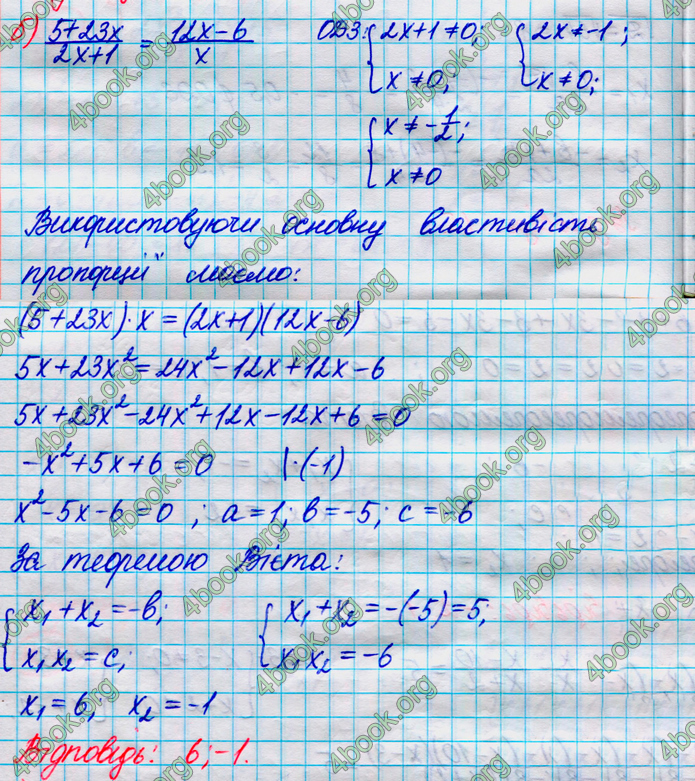 б) (5+23x)/(2x+1) = (12x-6)/x ОДЗ: { 2x+1≠0; x≠0; { 2x≠-1; x≠0;
{ x≠-1/2; x≠0
Використовуючи основну властивість
пропорції маємо:
(5+23x)·x=(2x+1)(12x-6)
5x+23x²=24x²-12x+12x-6
5x+23x²-24x²+12x-12x+6=0
-x²+5x+6=0 |·(-1)
x²-5x-6=0 ; a=1; b=-5; c=-6
За теоремою Вієта:
{ x₁+x₂=-b; { x₁+x₂=-(-5)=5;
x₁x₂=c; x₁x₂=-6
x₁=6; x₂=-1
Відповідь: 6;-1.
4book.org